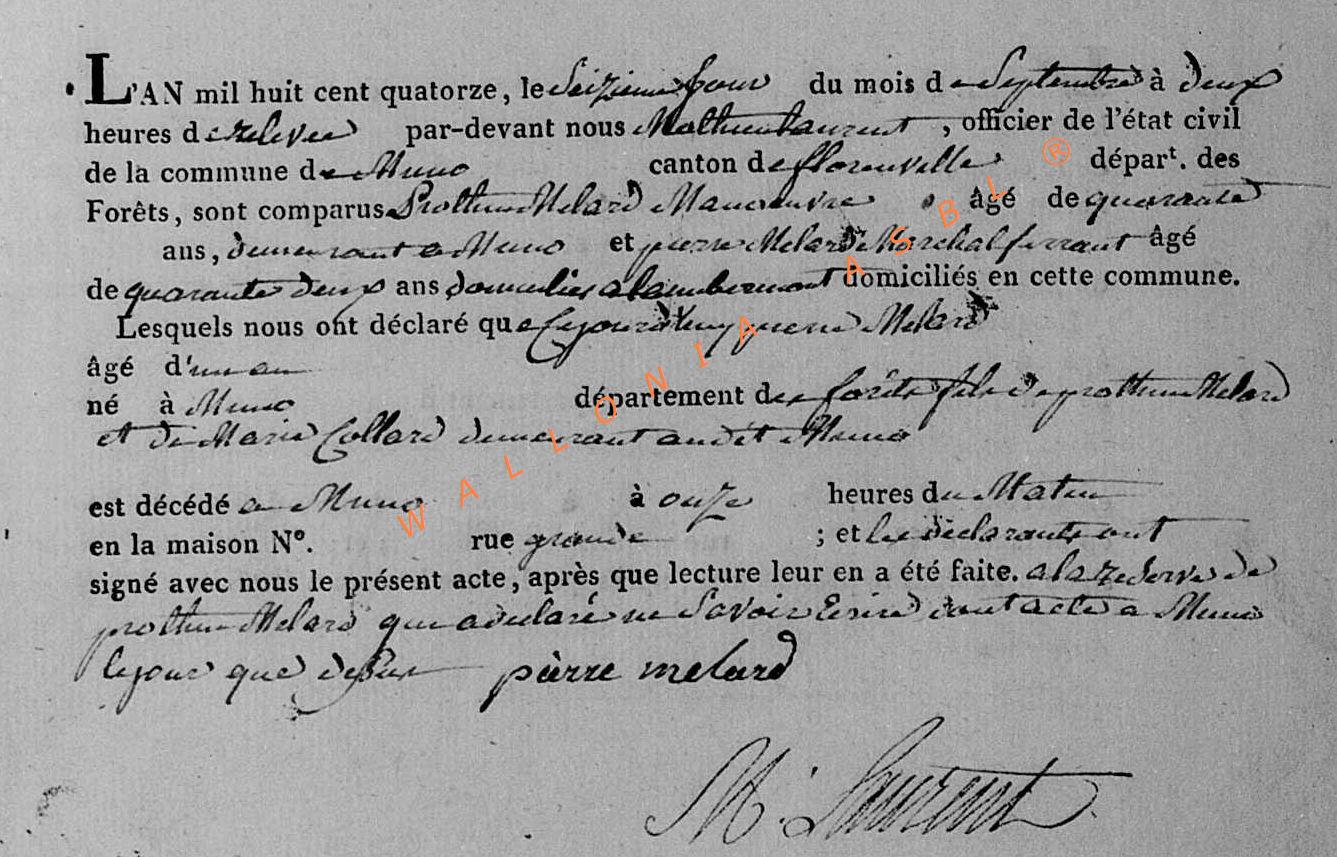 L'AN mil huit cent quatorze, le Seizieme jour du mois de Septembre à deux
heures de relevée par-devant nous Mathieu Laurent, officier de l'état civil
de la commune de Muno canton de florenville dépar^t. des
Forêts, sont comparus Melard Manoeuvre âgé de quarante
ans, demeurant a Muno et pierre Melard Marchal ferrant âgé
de quarante deux ans domicilies a lambermont domiciliés en cette commune.
Lesquels nous ont déclaré que Cejourdhuy pierre Melard
âgé d'un an
né à Muno département des forêts fils de Melard
et de Marie Collard demeurant audit Muno
est décédé a Muno à onze heures du Matin
en la maison N°. rue grande ; et les declarants ont
signé avec nous le présent acte, après que lecture leur en a été faite. a la reserve de
Melard qui a declaré ne Savoir Ecrire dont acte a Muno
le jour que deSus pierre melard
M. Laurent
WALLONIA ASBL ®